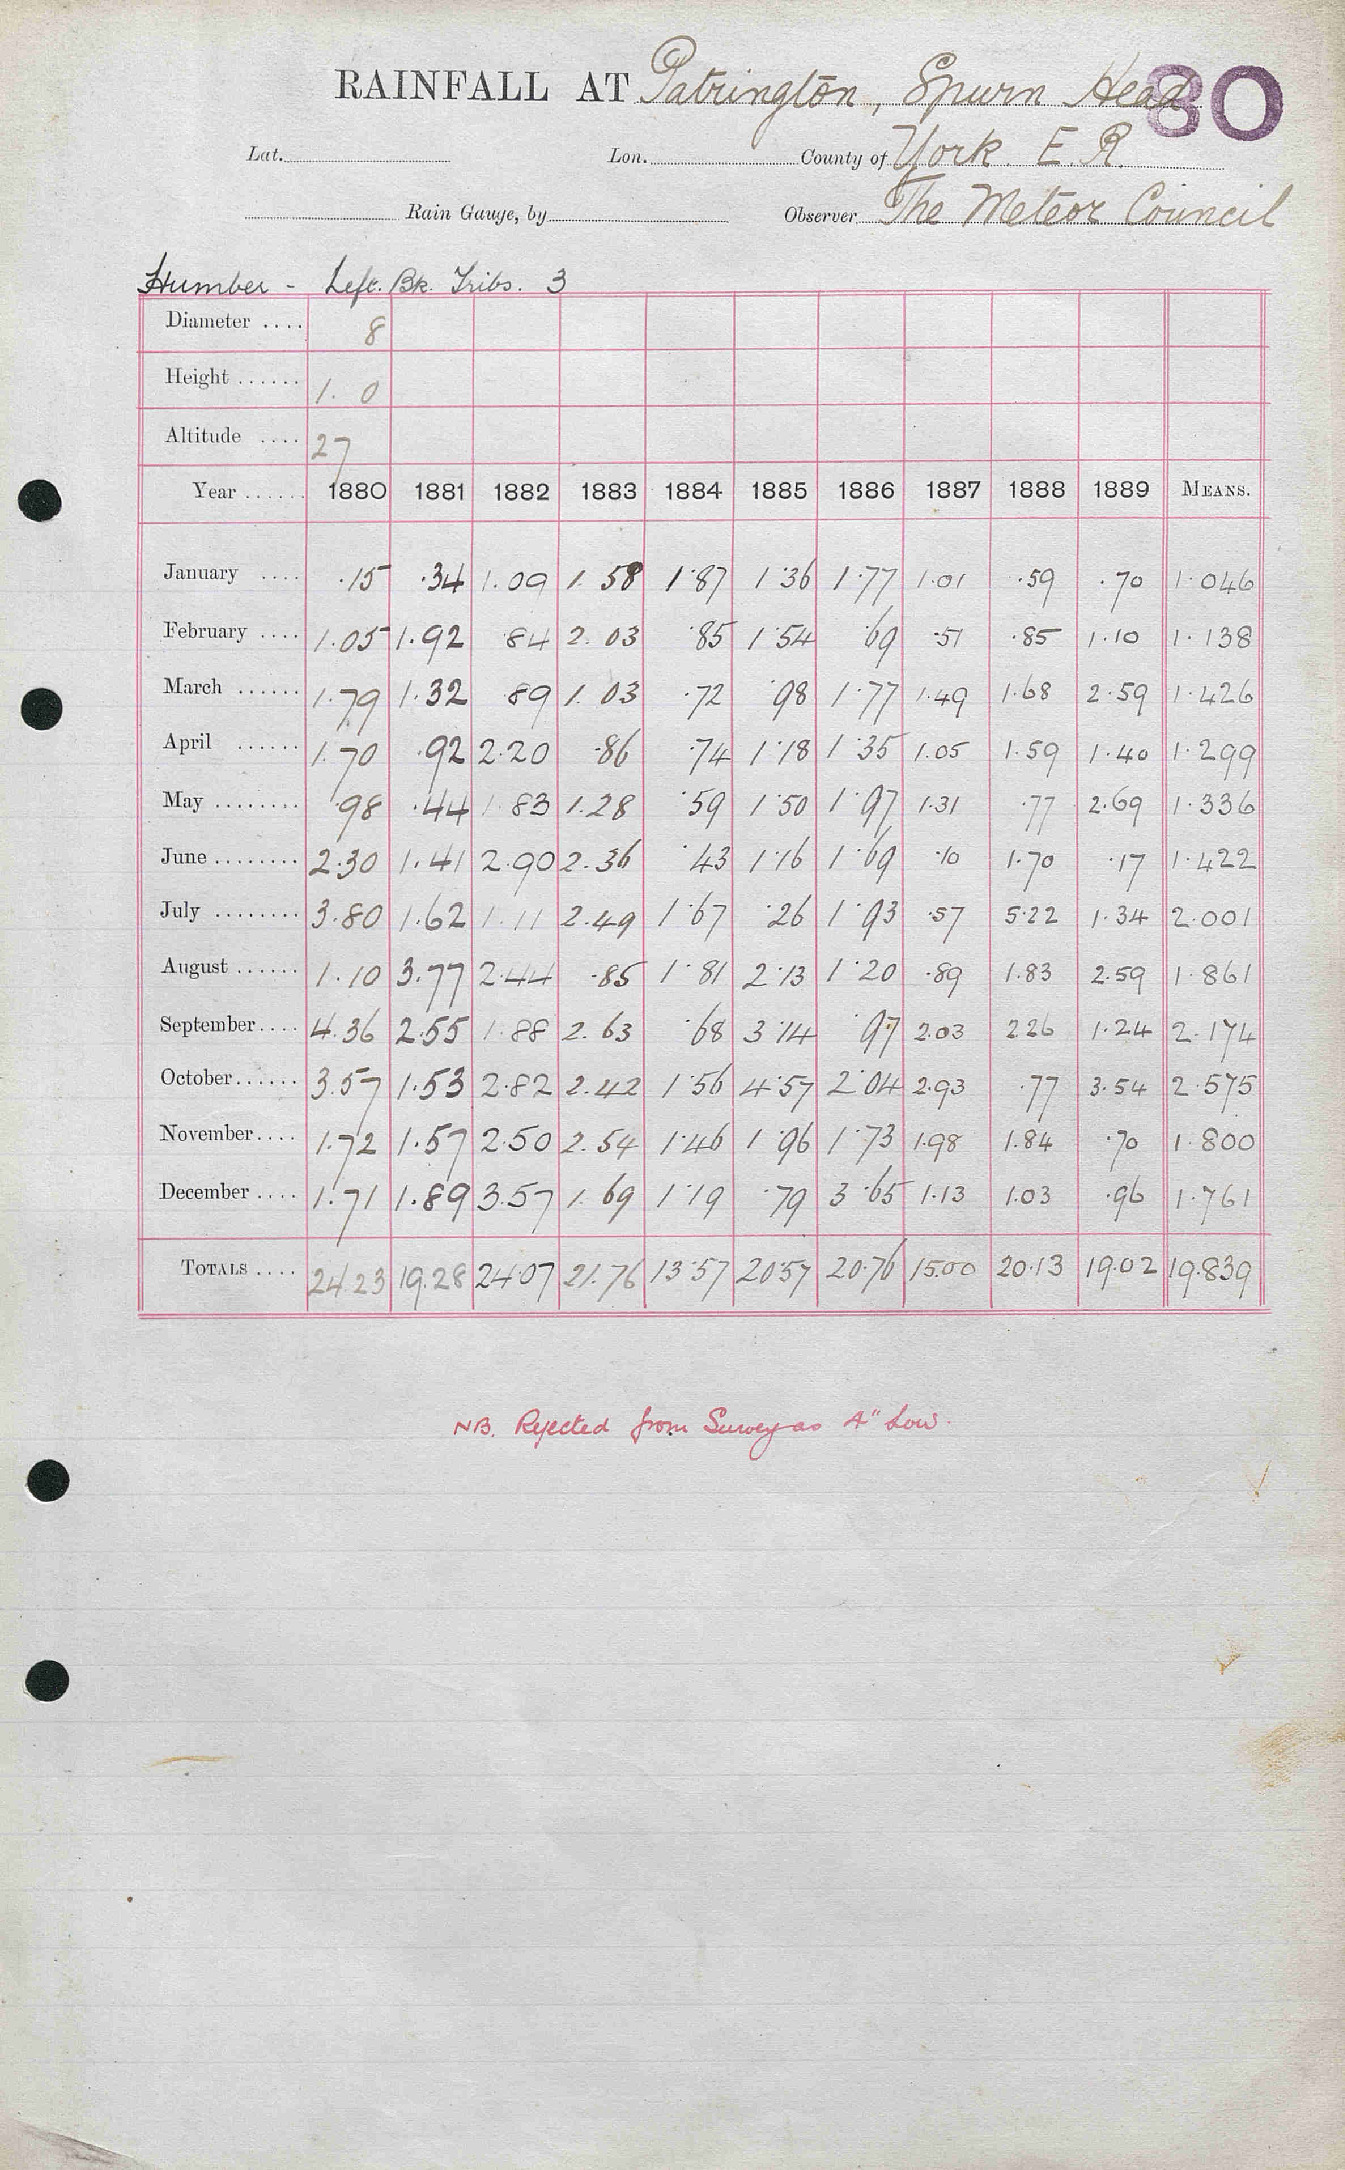 RAINFALL AT Patrington, Spurn Head 80
Lat. Lon. County of York. E. R.
Rain Gauge, by Observer The Meteor Council
Humber - Left. Bk. Tribs. 3
Diameter .... 8
Height ...... 1. 0
Altitude .... 27
Year ...... 1880 1881 1882 1883 1884 1885 1886 1887 1888 1889 MEANS.
January .... .15 .34 1.09 1.58 1.87 1.36 1.77 1.01 .59 .70 1.046
February .... 1.05 1.92 .84 2.03 .85 1.54 .69 .51 .85 1.10 1.138
March ...... 1.79 1.32 .89 1.03 .72 .98 1.77 1.49 1.68 2.59 1.426
April ...... 1.70 .92 2.20 .86 .74 1.18 1.35 1.05 1.59 1.40 1.299
May ........ .98 .44 1.83 1.28 .59 1.50 1.97 1.31 .77 2.69 1.336
June ........ 2.30 1.41 2.90 2.36 .43 1.16 1.69 .10 1.70 .17 1.422
July ........ 3.80 1.62 1.11 2.49 1.67 .26 1.93 .57 5.22 1.34 2.001
August ...... 1.10 3.77 2.44 .85 1.81 2.13 1.20 .89 1.83 2.59 1.861
September .... 4.36 2.55 1.88 2.63 .68 3.14 .97 2.03 2.26 1.24 2.174
October ...... 3.57 1.53 2.82 2.42 1.56 4.57 2.04 2.93 .77 3.54 2.575
November .... 1.72 1.57 2.50 2.54 1.46 1.96 1.73 1.98 1.84 .70 1.800
December .... 1.71 1.89 3.57 1.69 1.19 .79 3.65 1.13 1.03 .96 1.761
TOTALS .... 24.23 19.28 24.07 21.76 13.57 20.57 20.76 15.00 20.13 19.02 19.839
NB. Rejected from Survey as 4" Low.